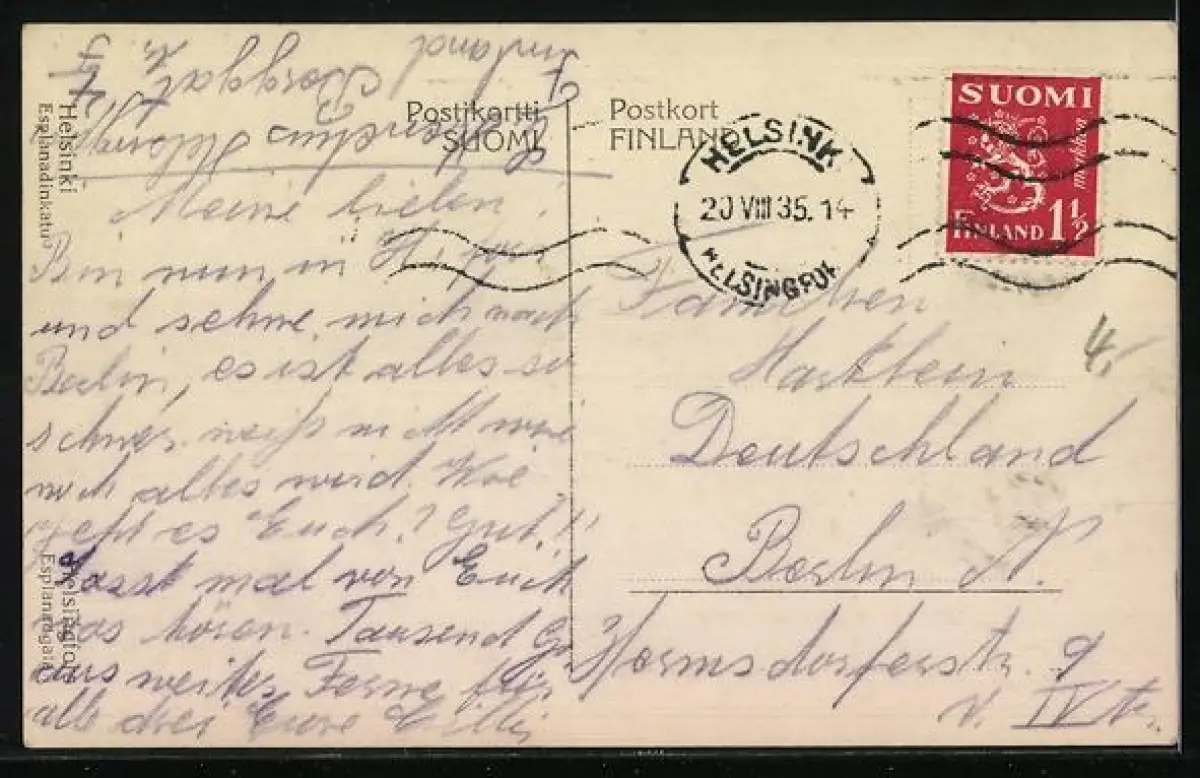 Postikortti
SUOMI
Postkort
FINLAND
HELSINKI
20 VIII 35. 14
HELSINGFORS
SUOMI
markkaa
FINLAND 1 1/2
4,-
Helsinki
Esplanadinkatu
Helsingfors
Esplanadgatan
Finland
Borggat.
Helsing
Meine lieben!
Bin nun in
und sehne mich nach
Berlin, es ist alles so
schwer weiß nicht wie
noch alles wird. Wie
geht es Euch? Gut!!
Lasst mal von Euch
was hören. Tausend Gr
aus weiter Ferne für
alle drei Eure Cilli
Hartbein
Deutschland
Berlin N.
Hermsdorferstr. 9
v. IV tr.